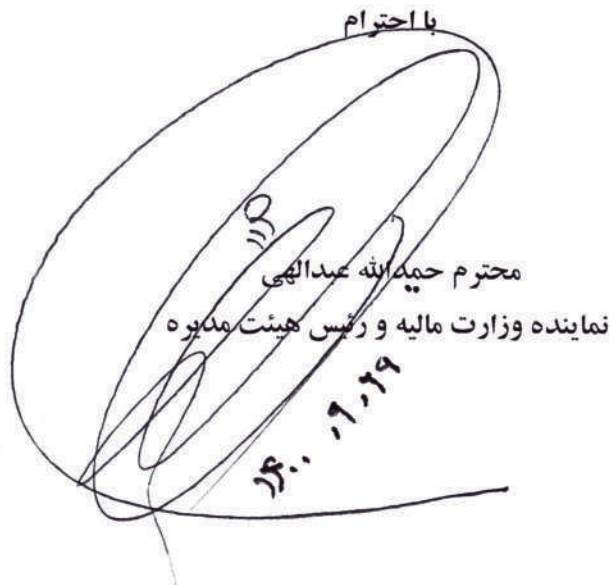 با احترام
محترم حمیدالله عبدالهی
نماینده وزارت مالیه و رئیس هیئت مدیره
۱۴۰۰,۹,۲۹